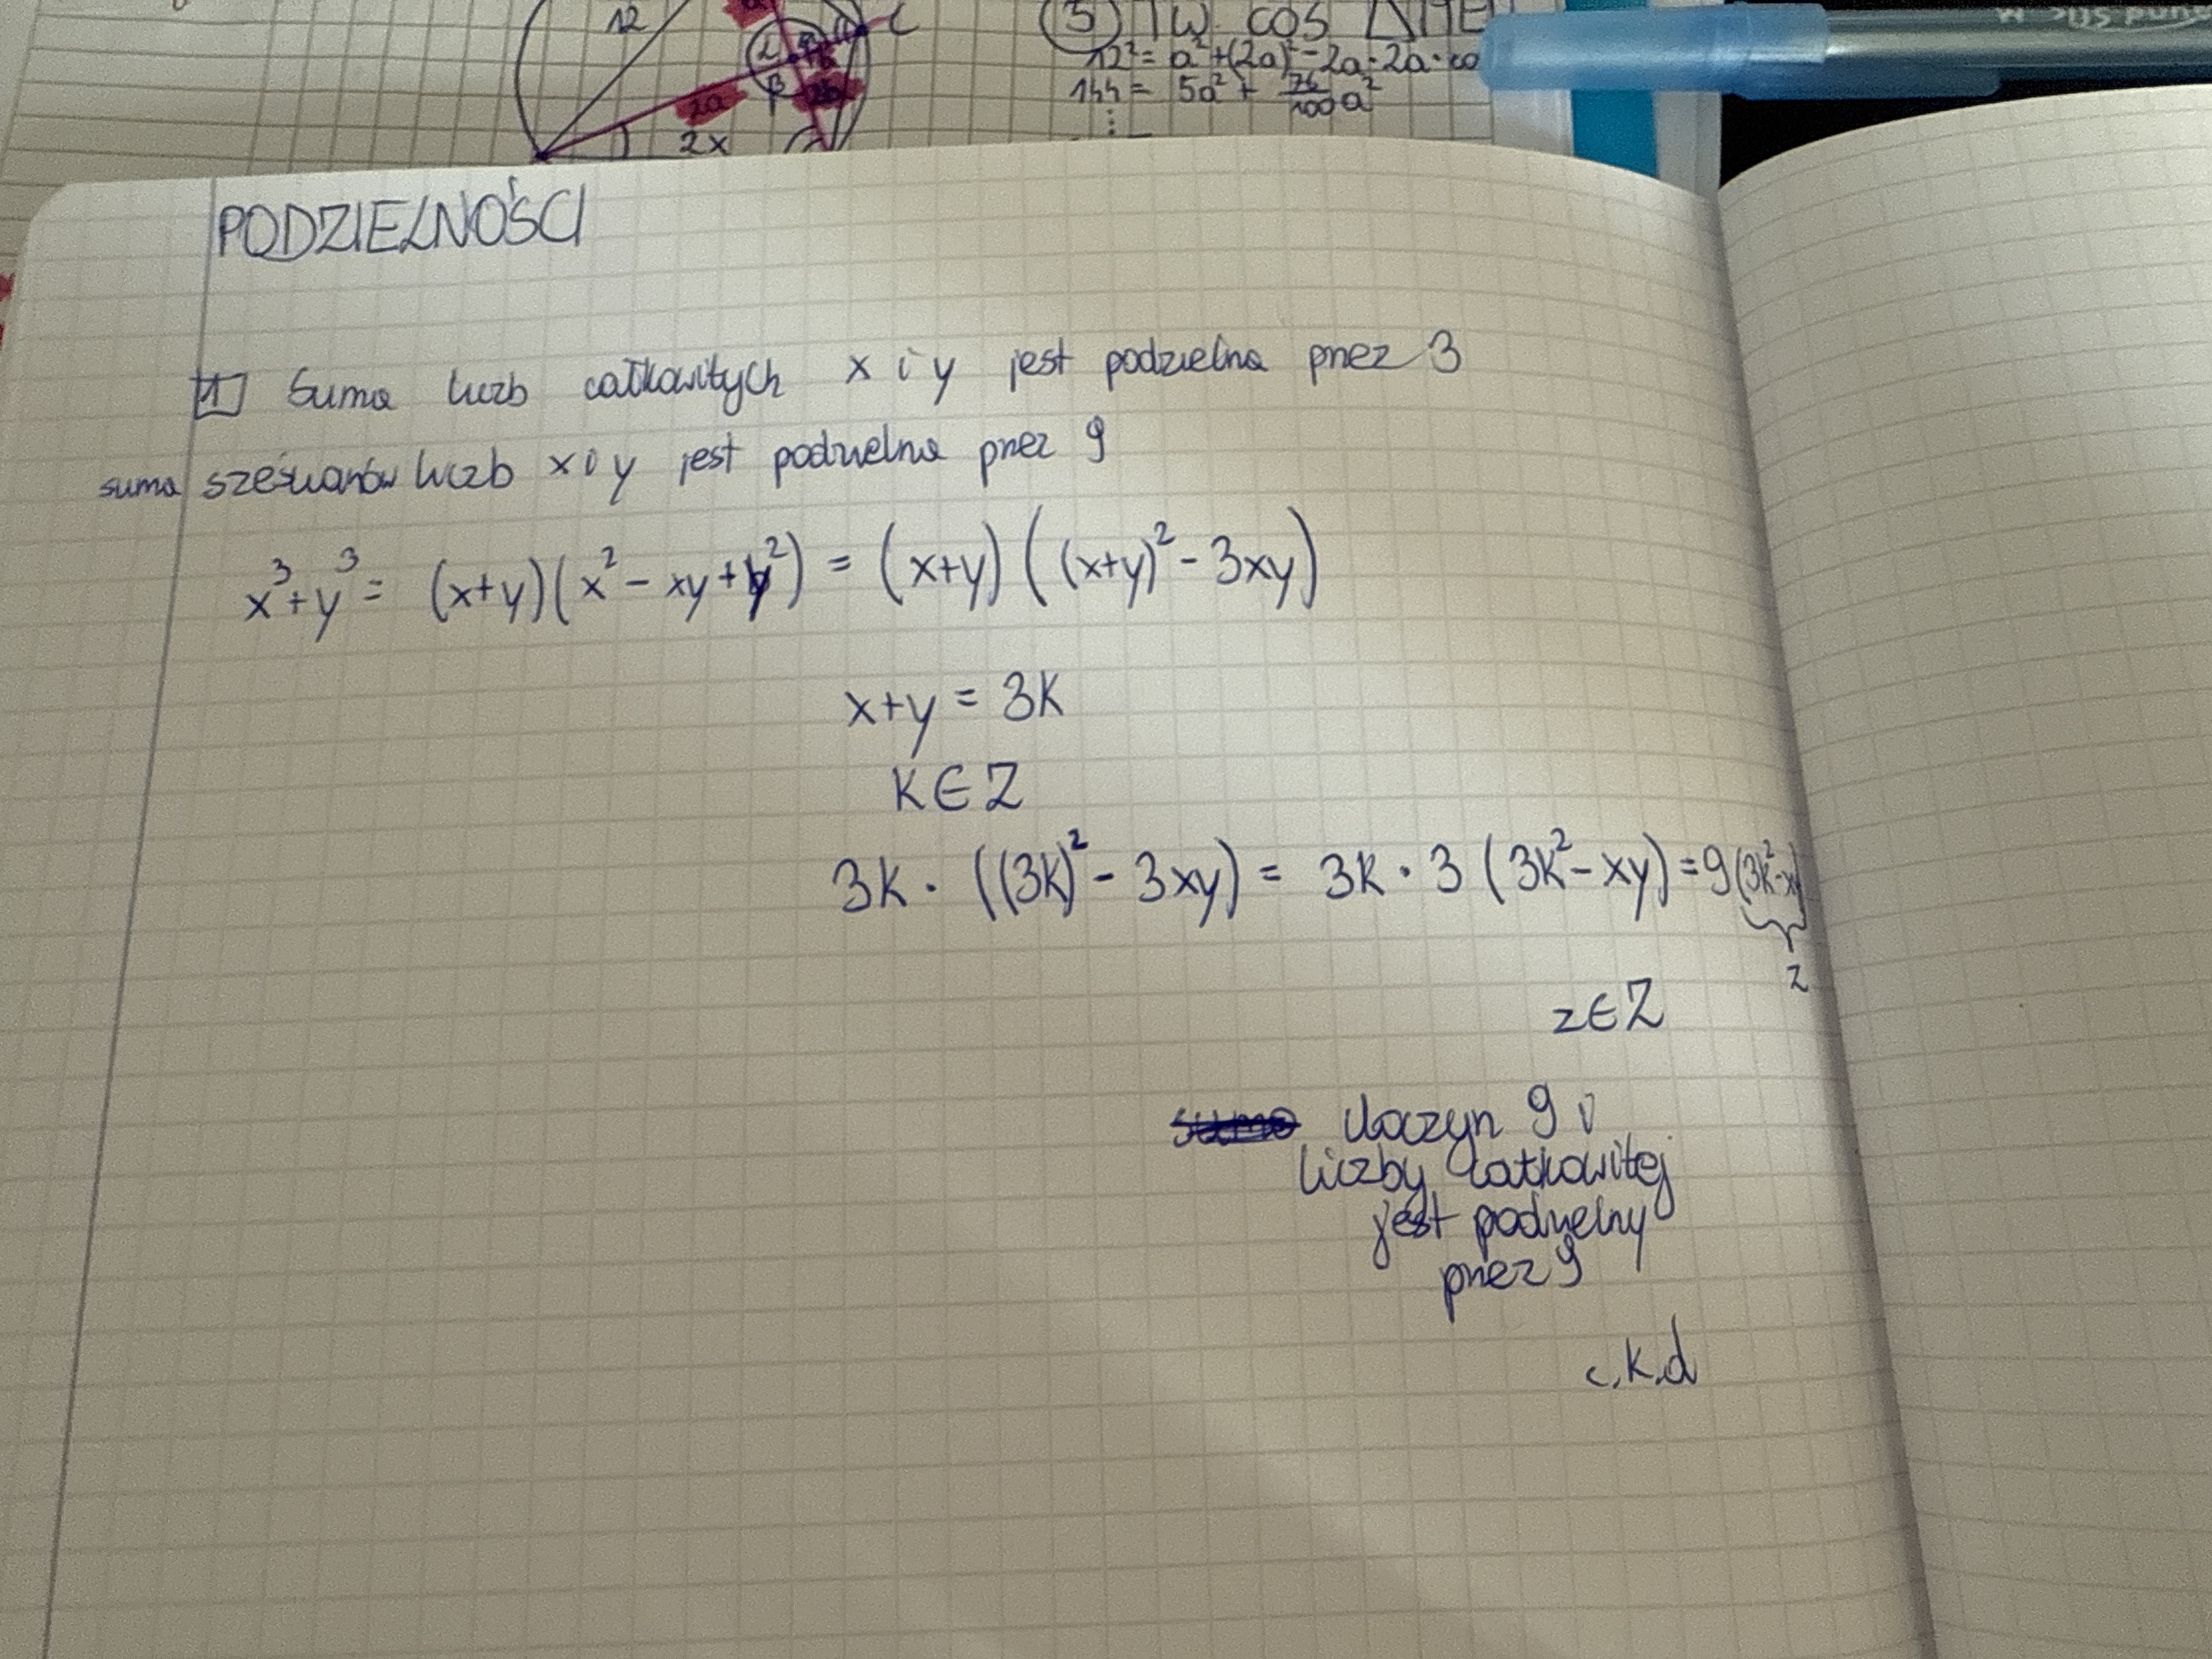 12
2a
2x
C
③ TW. cos
12² = a² + (2a)² - 2a·2a·co
144 = 5a² + 76/100 a²
⋮
PODZIELNOŚCI
1 Suma liczb całkowitych x i y jest podzielna przez 3
suma sześcianów liczb x i y jest podzielna przez 9
x³+y³ = (x+y)(x² - xy + y²) = (x+y)((x+y)² - 3xy)
x+y = 3k
k ∈ Z
3k · ((3k)² - 3xy) = 3k · 3 (3k² - xy) = 9(3k²-xy)
z
z ∈ Z
Iloczyn 9 i
liczby całkowitej
jest podzielny
przez 9
c.k.d